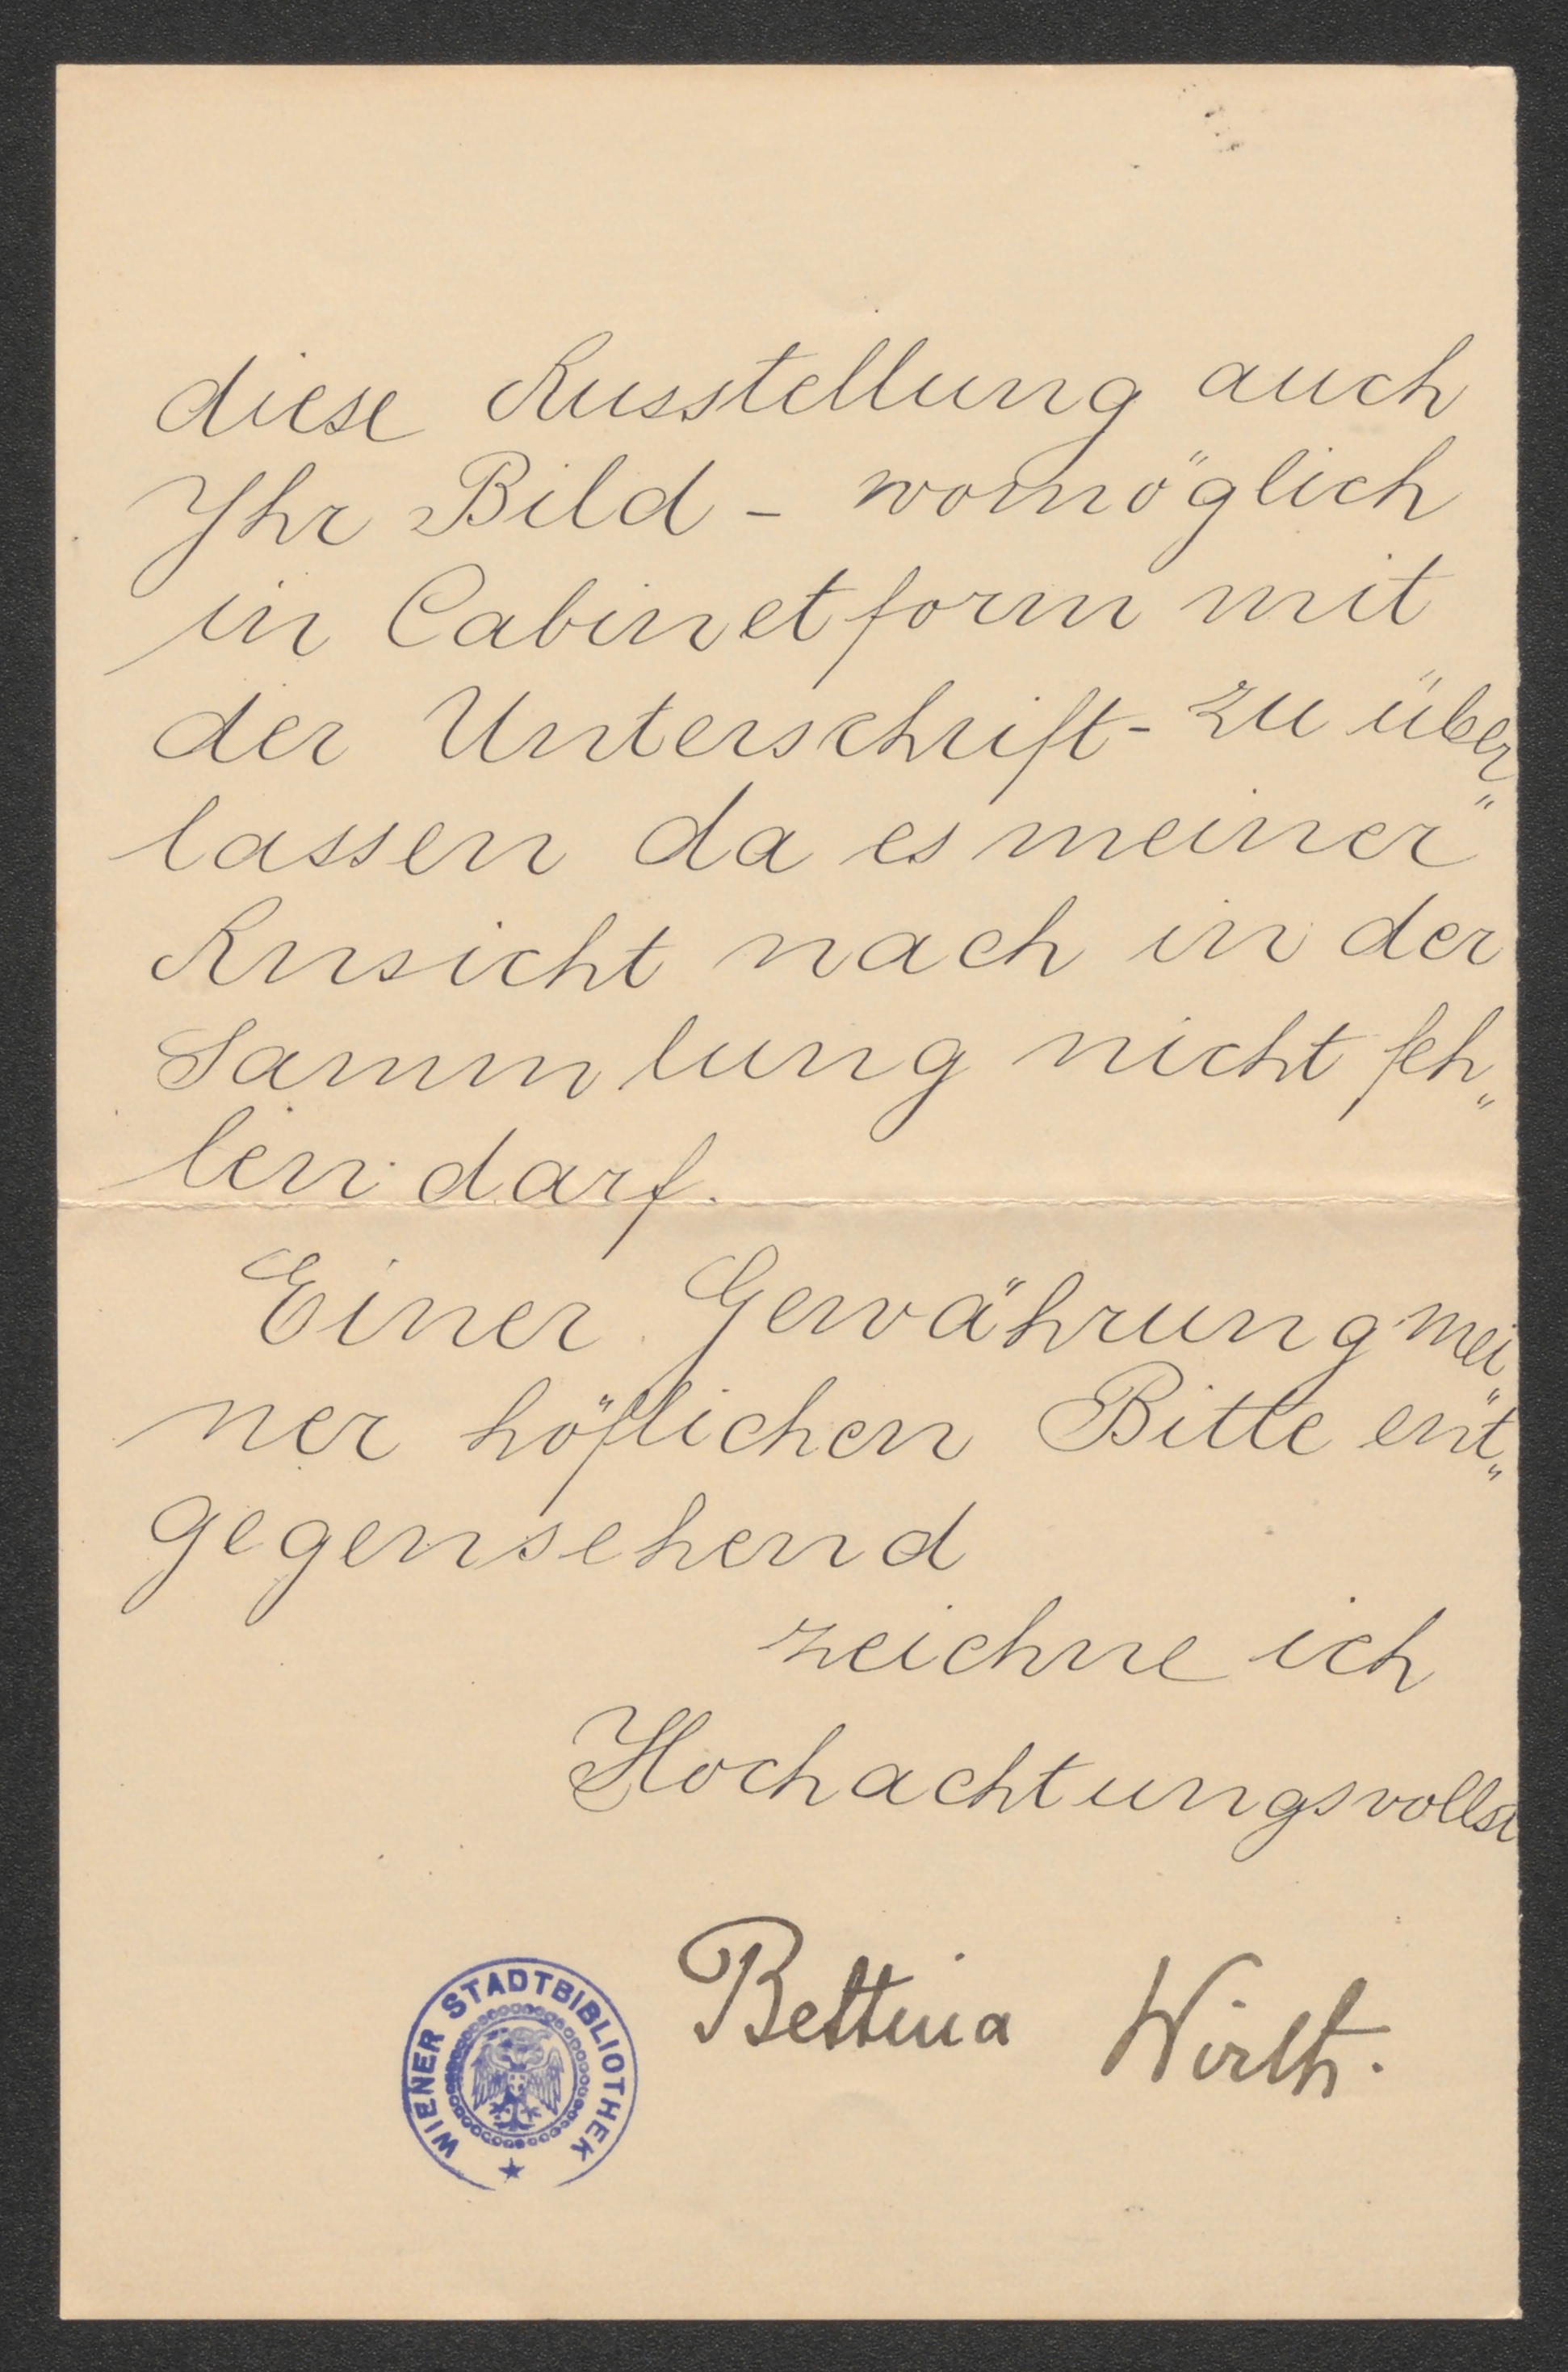 diese Ausstellung auch
Ihr Bild - womöglich
in Cabinetform mit
der Unterschrift - zu über„
lassen da es meiner
Ansicht nach in der
Sammlung nicht feh„
len darf.
Einer Gewährung mei„
ner höflichen Bitte ent„
gegensehend
zeichne ich
Hochachtungsvollst
Bettina Wirth.
WIENER STADTBIBLIOTHEK